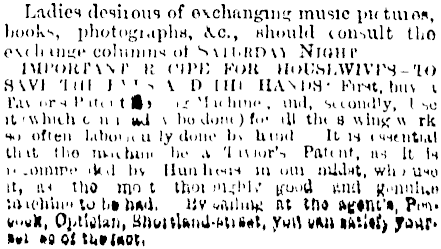 Ladies desirous of exchanging music pictures,
books, photographs, &c., should consult the
exchange columns of SATURDAY NIGHT
IMPORTANT R CIPE FOR HOUSEWIVES—TO
SAVE THE EYES A D THE HANDS: First, buy a
Taylor's Patent g Machine, and, secondly, Use
it (which can be done) for all the s wing w rk
so often laboriously done by hand It is essential
that the machine be a Taylor's Patent, as it is
recomme ded by Hundreds in our midst, who use
it, as the most thoroughly good and genuine
machine to be had. By calling at the agent's, Pea-
cock, Optician, Shortland-street, you can satisfy your-
sel es of the fact.